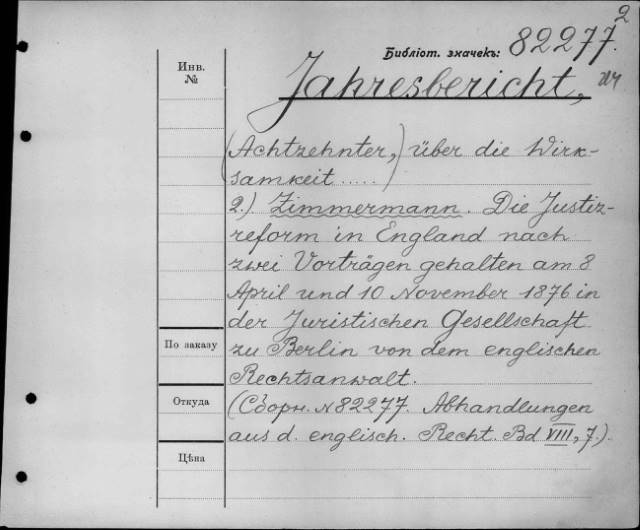 2
Библіот. значекъ: 82277.
Инв.
№
Jahresbericht,
(Achtzehnter,) über die Wirk-
samkeit .....)
2.) Zimmermann. Die Justiz-
reform in England nach
zwei Vorträgen gehalten am 8
April und 10 November 1876 in
der Juristischen Gesellschaft
По заказу
zu Berlin von dem englischen
Rechtsanwalt.
Откуда
(Сборн. № 82277. Abhandlungen
aus d. englisch. Recht. Bd VIII, 7.).
Цѣна